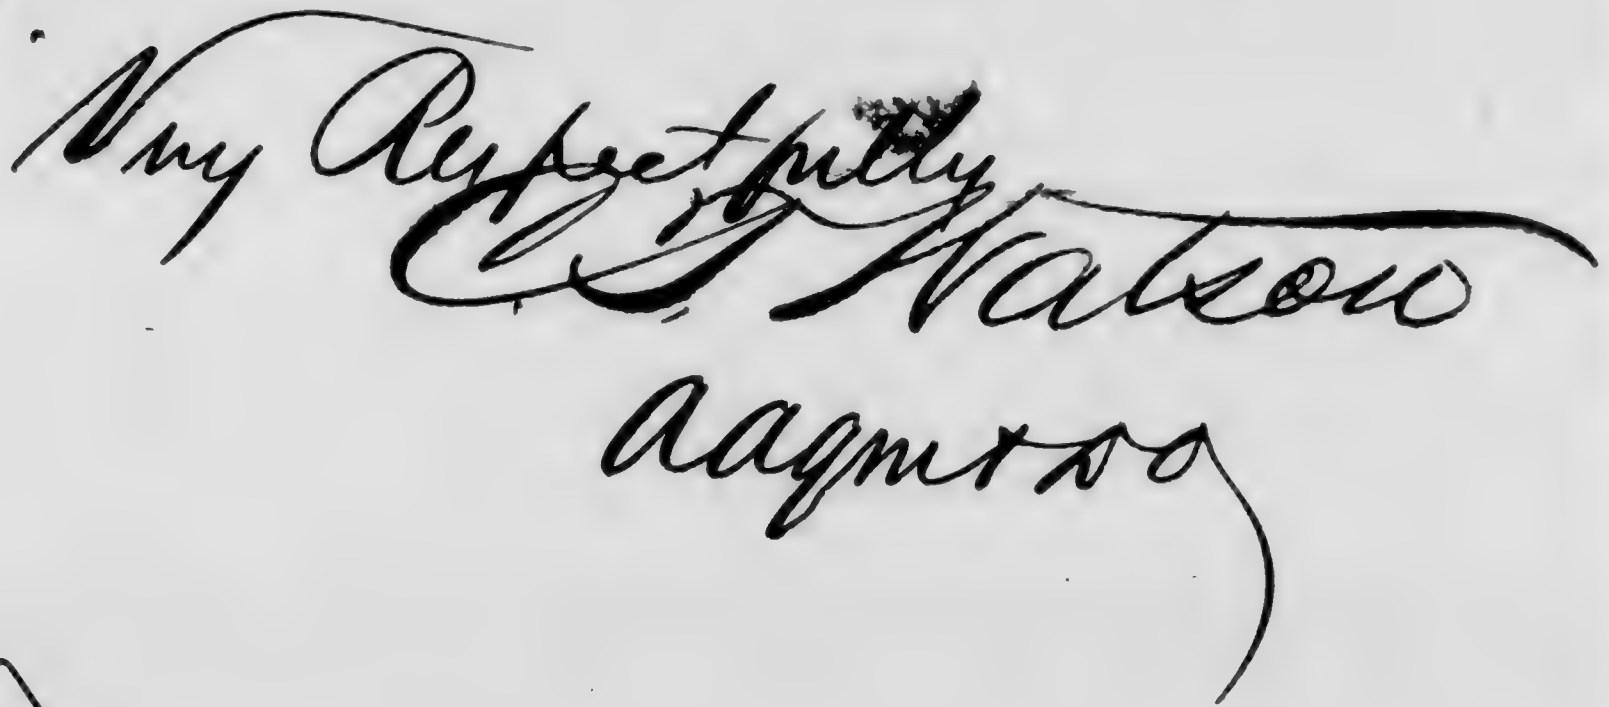 Very Respectfully
C. S. Watson
AAQM & DO